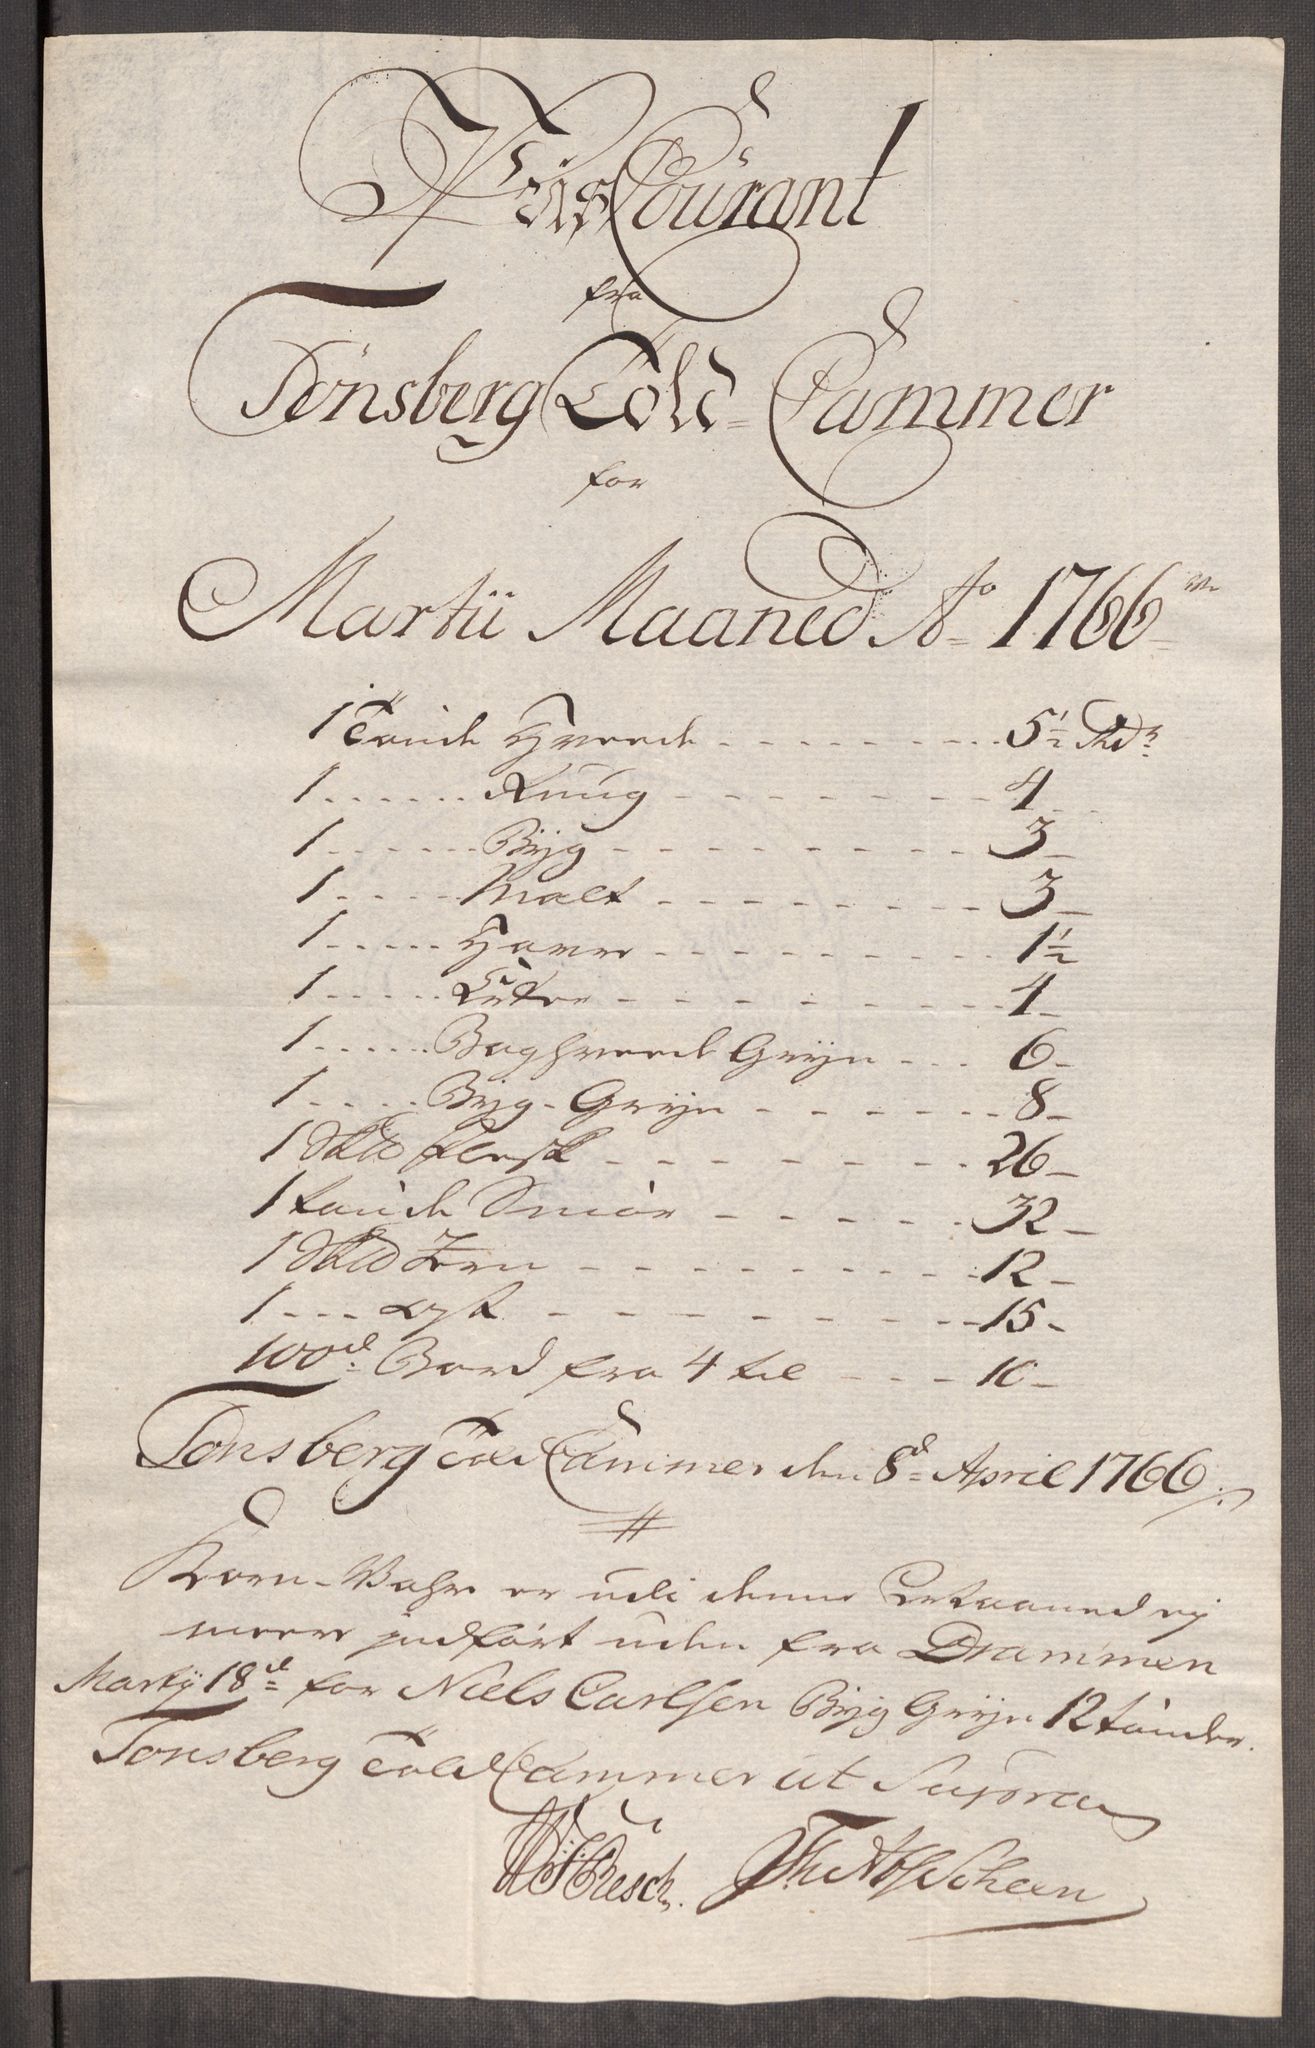 Priis Courant
fra
Tønsberg Told-Cammer
for
Martii Maaned Ao 1766
1 Tønde Hvede 5 1/2 Rdr
1 Ruug 4
1 Byg 3
1 Malt 3
1 Havre 1 1/2
1 Erter 4
1 Boghvede Gryn 6
1 Byg-Gryn 8
1 Skld Flesk 26
1 tønde Smør 32
1 Skld Jern 12
1 Ost 15
100de Bord fra 4 til 10
Tønsberg Told Cammer den 8de April 1766
Korn-Vahre er udi denne Maaned ej
meere indført uden fra Drammen
Martij 18de for Niels Carlsen Byg Gryn 12 tønder.
Tønsberg Told Cammer ut Supra
Resch. Scheen